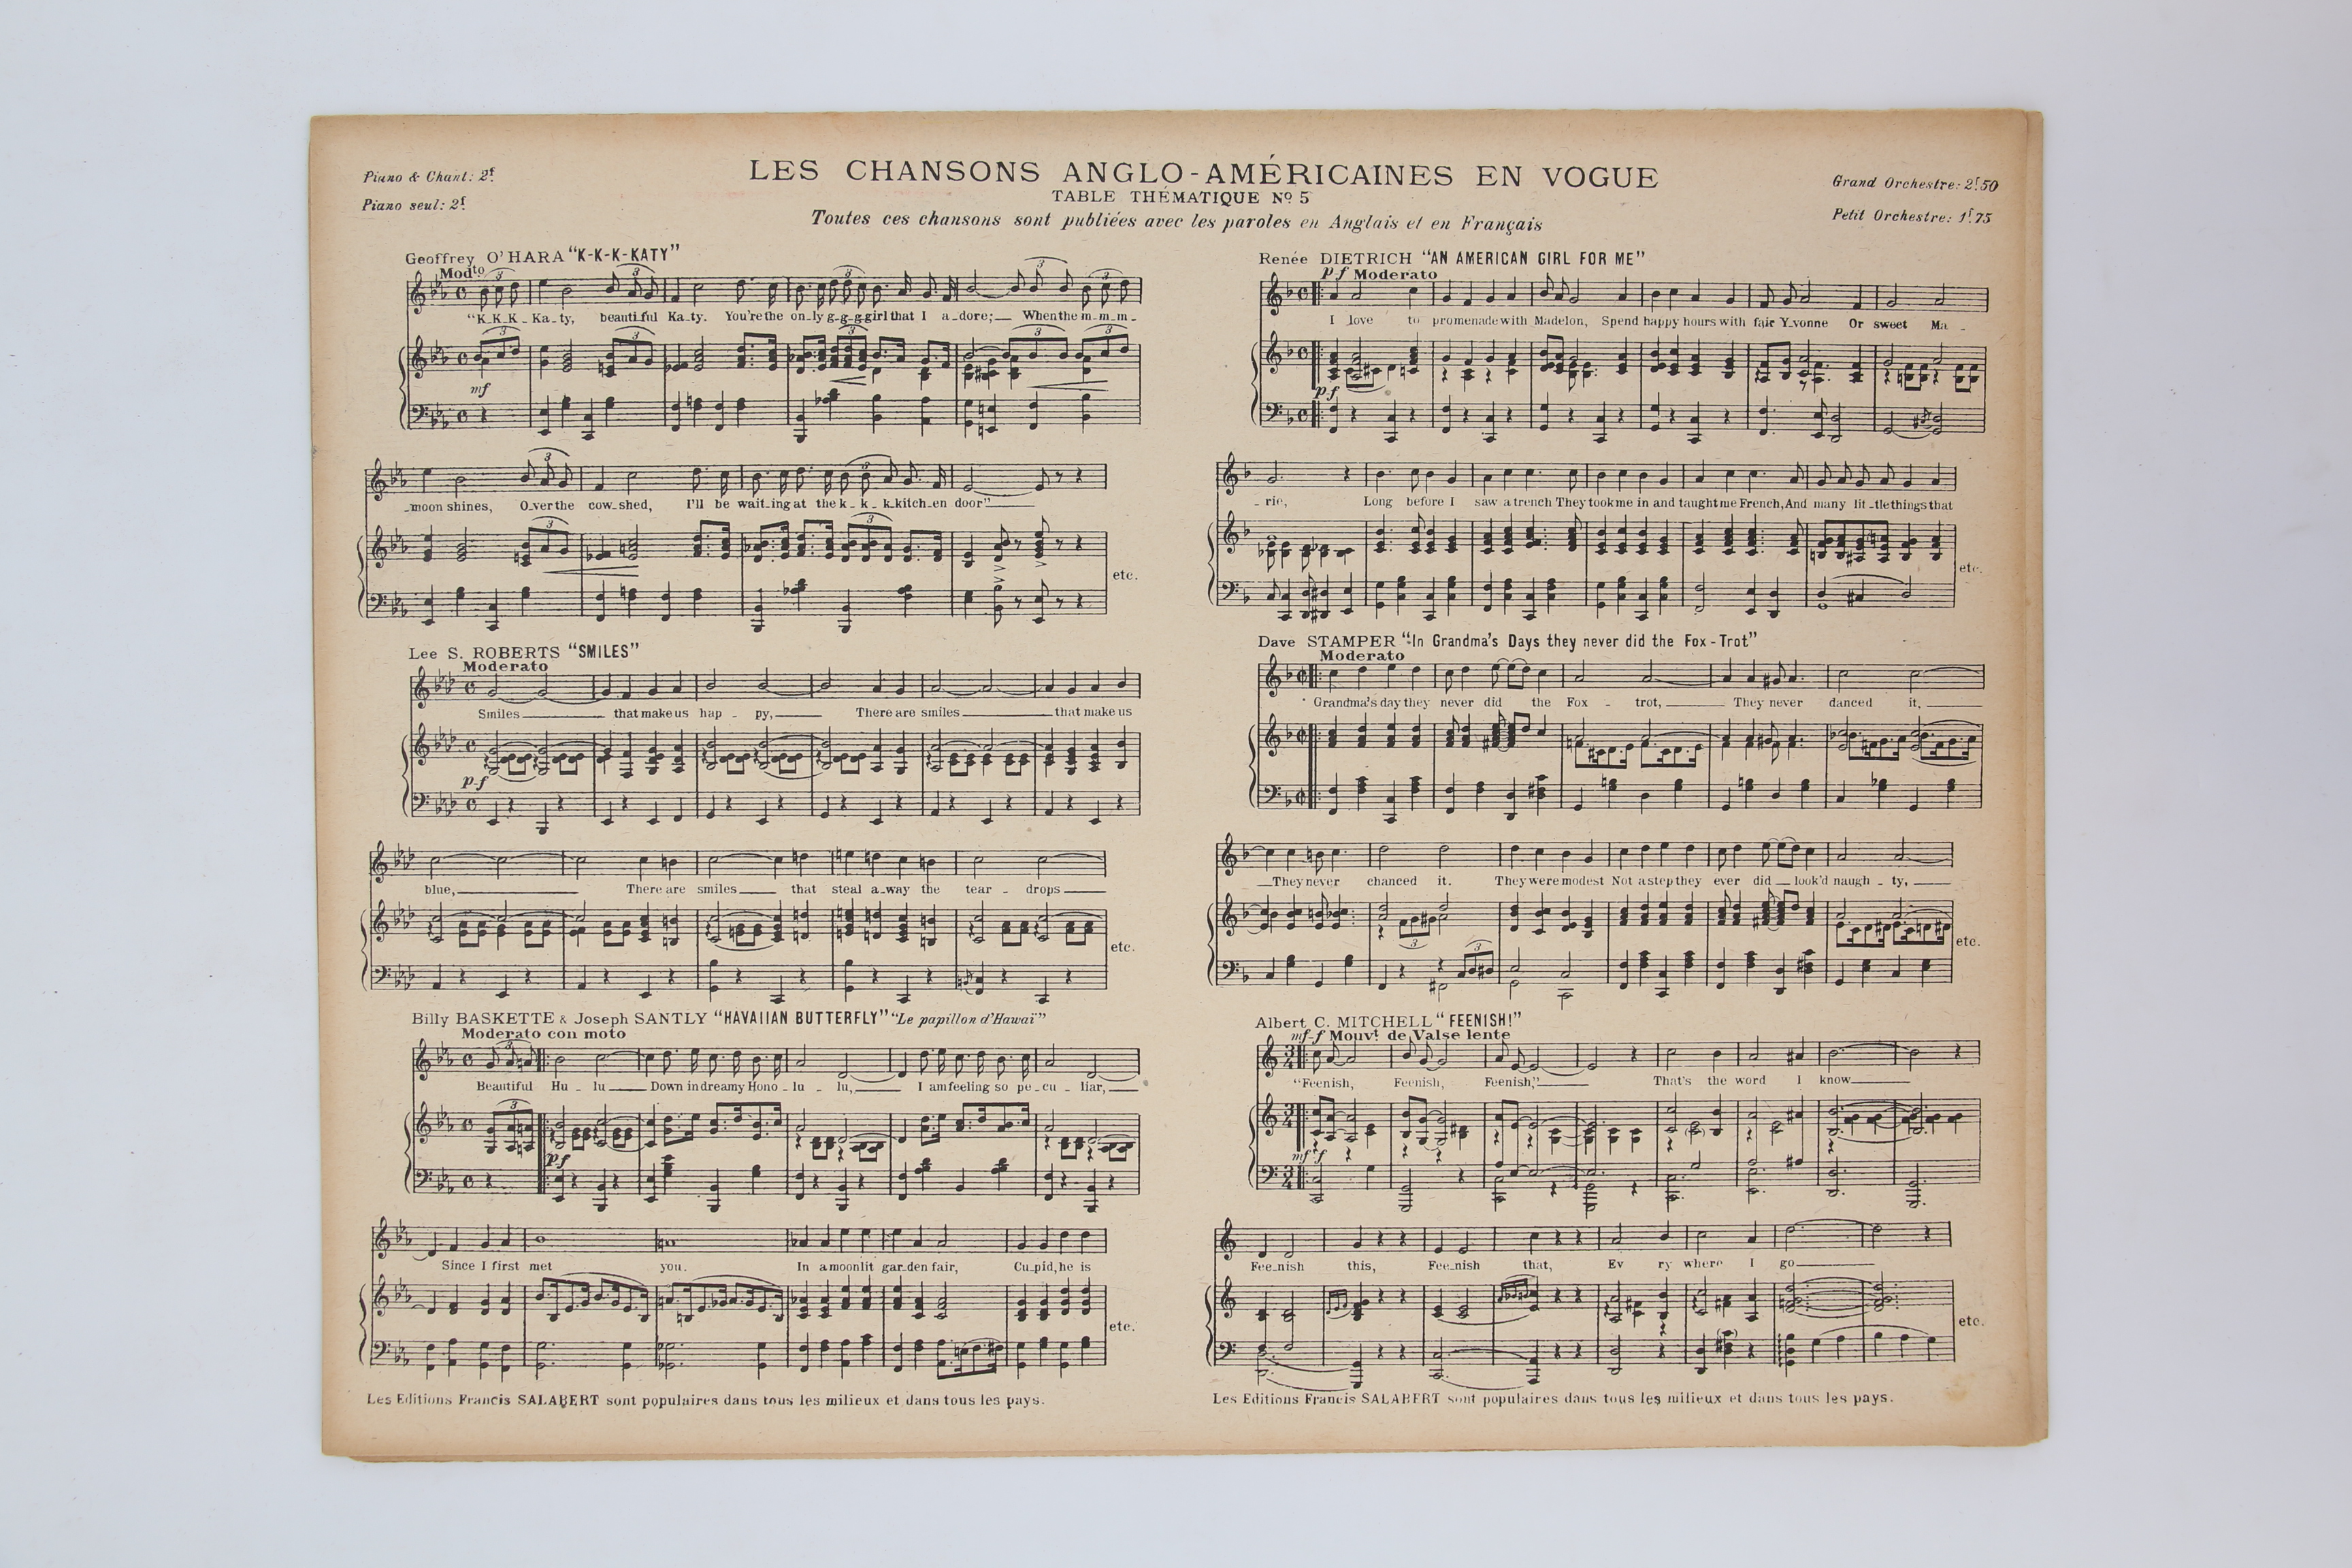 Piano & Chant: 2f.
Piano seul: 2f.
LES CHANSONS ANGLO-AMÉRICAINES EN VOGUE
TABLE THÉMATIQUE No 5
Toutes ces chansons sont publiées avec les paroles en Anglais et en Français
Grand Orchestre: 2f.50
Petit Orchestre: 1f.75
Geoffrey O'HARA “K-K-K-KATY”
Modto
“K_K_K_Ka_ty, beauti_ful Ka_ty. You're the on_ly g_g_g_girl that I a_dore;__ When the m_m_m_
mf
_moon shines, O_ver the cow_shed, I'll be wait_ing at the k_k_k_kitch_en door”__
etc.
Lee S. ROBERTS “SMILES”
Moderato
Smiles____ that make us hap _ py,____ There are smiles____ that make us
p-f
blue,____ There are smiles____ that steal a_way the tear _ drops____
etc.
Billy BASKETTE & Joseph SANTLY “HAVAIIAN BUTTERFLY” “Le papillon d'Hawaï”
Moderato con moto
Beautiful Hu _ lu____ Down in dreamy Hono _ lu _ lu,____ I am feeling so pe_cu _ liar,____
p-f
Since I first met you. In a moonlit gar_den fair, Cu_pid, he is
etc.
Les Editions Francis SALABERT sont populaires dans tous les milieux et dans tous les pays.
Renée DIETRICH “AN AMERICAN GIRL FOR ME”
p-f Moderato
I love to promenade with Madelon, Spend happy hours with fair Y_vonne Or sweet Ma _
p-f
_ rie, Long before I saw a trench They took me in and taught me French, And many lit_tle things that
etc.
Dave STAMPER “In Grandma's Days they never did the Fox-Trot”
Moderato
Grandma's day they never did the Fox _ trot,____ They never danced it,____
__They never chanced it. They were modest Not a step they ever did__ look'd naugh _ ty,____
etc.
Albert C. MITCHELL “FEENISH!”
mf-f Mouvt de Valse lente
“Feenish, Feenish, Feenish,”____ That's the word I know____
mf-f
Fee_nish this, Fee_nish that, Ev ry where I go____
etc.
Les Editions Francis SALABERT sont populaires dans tous les milieux et dans tous les pays.